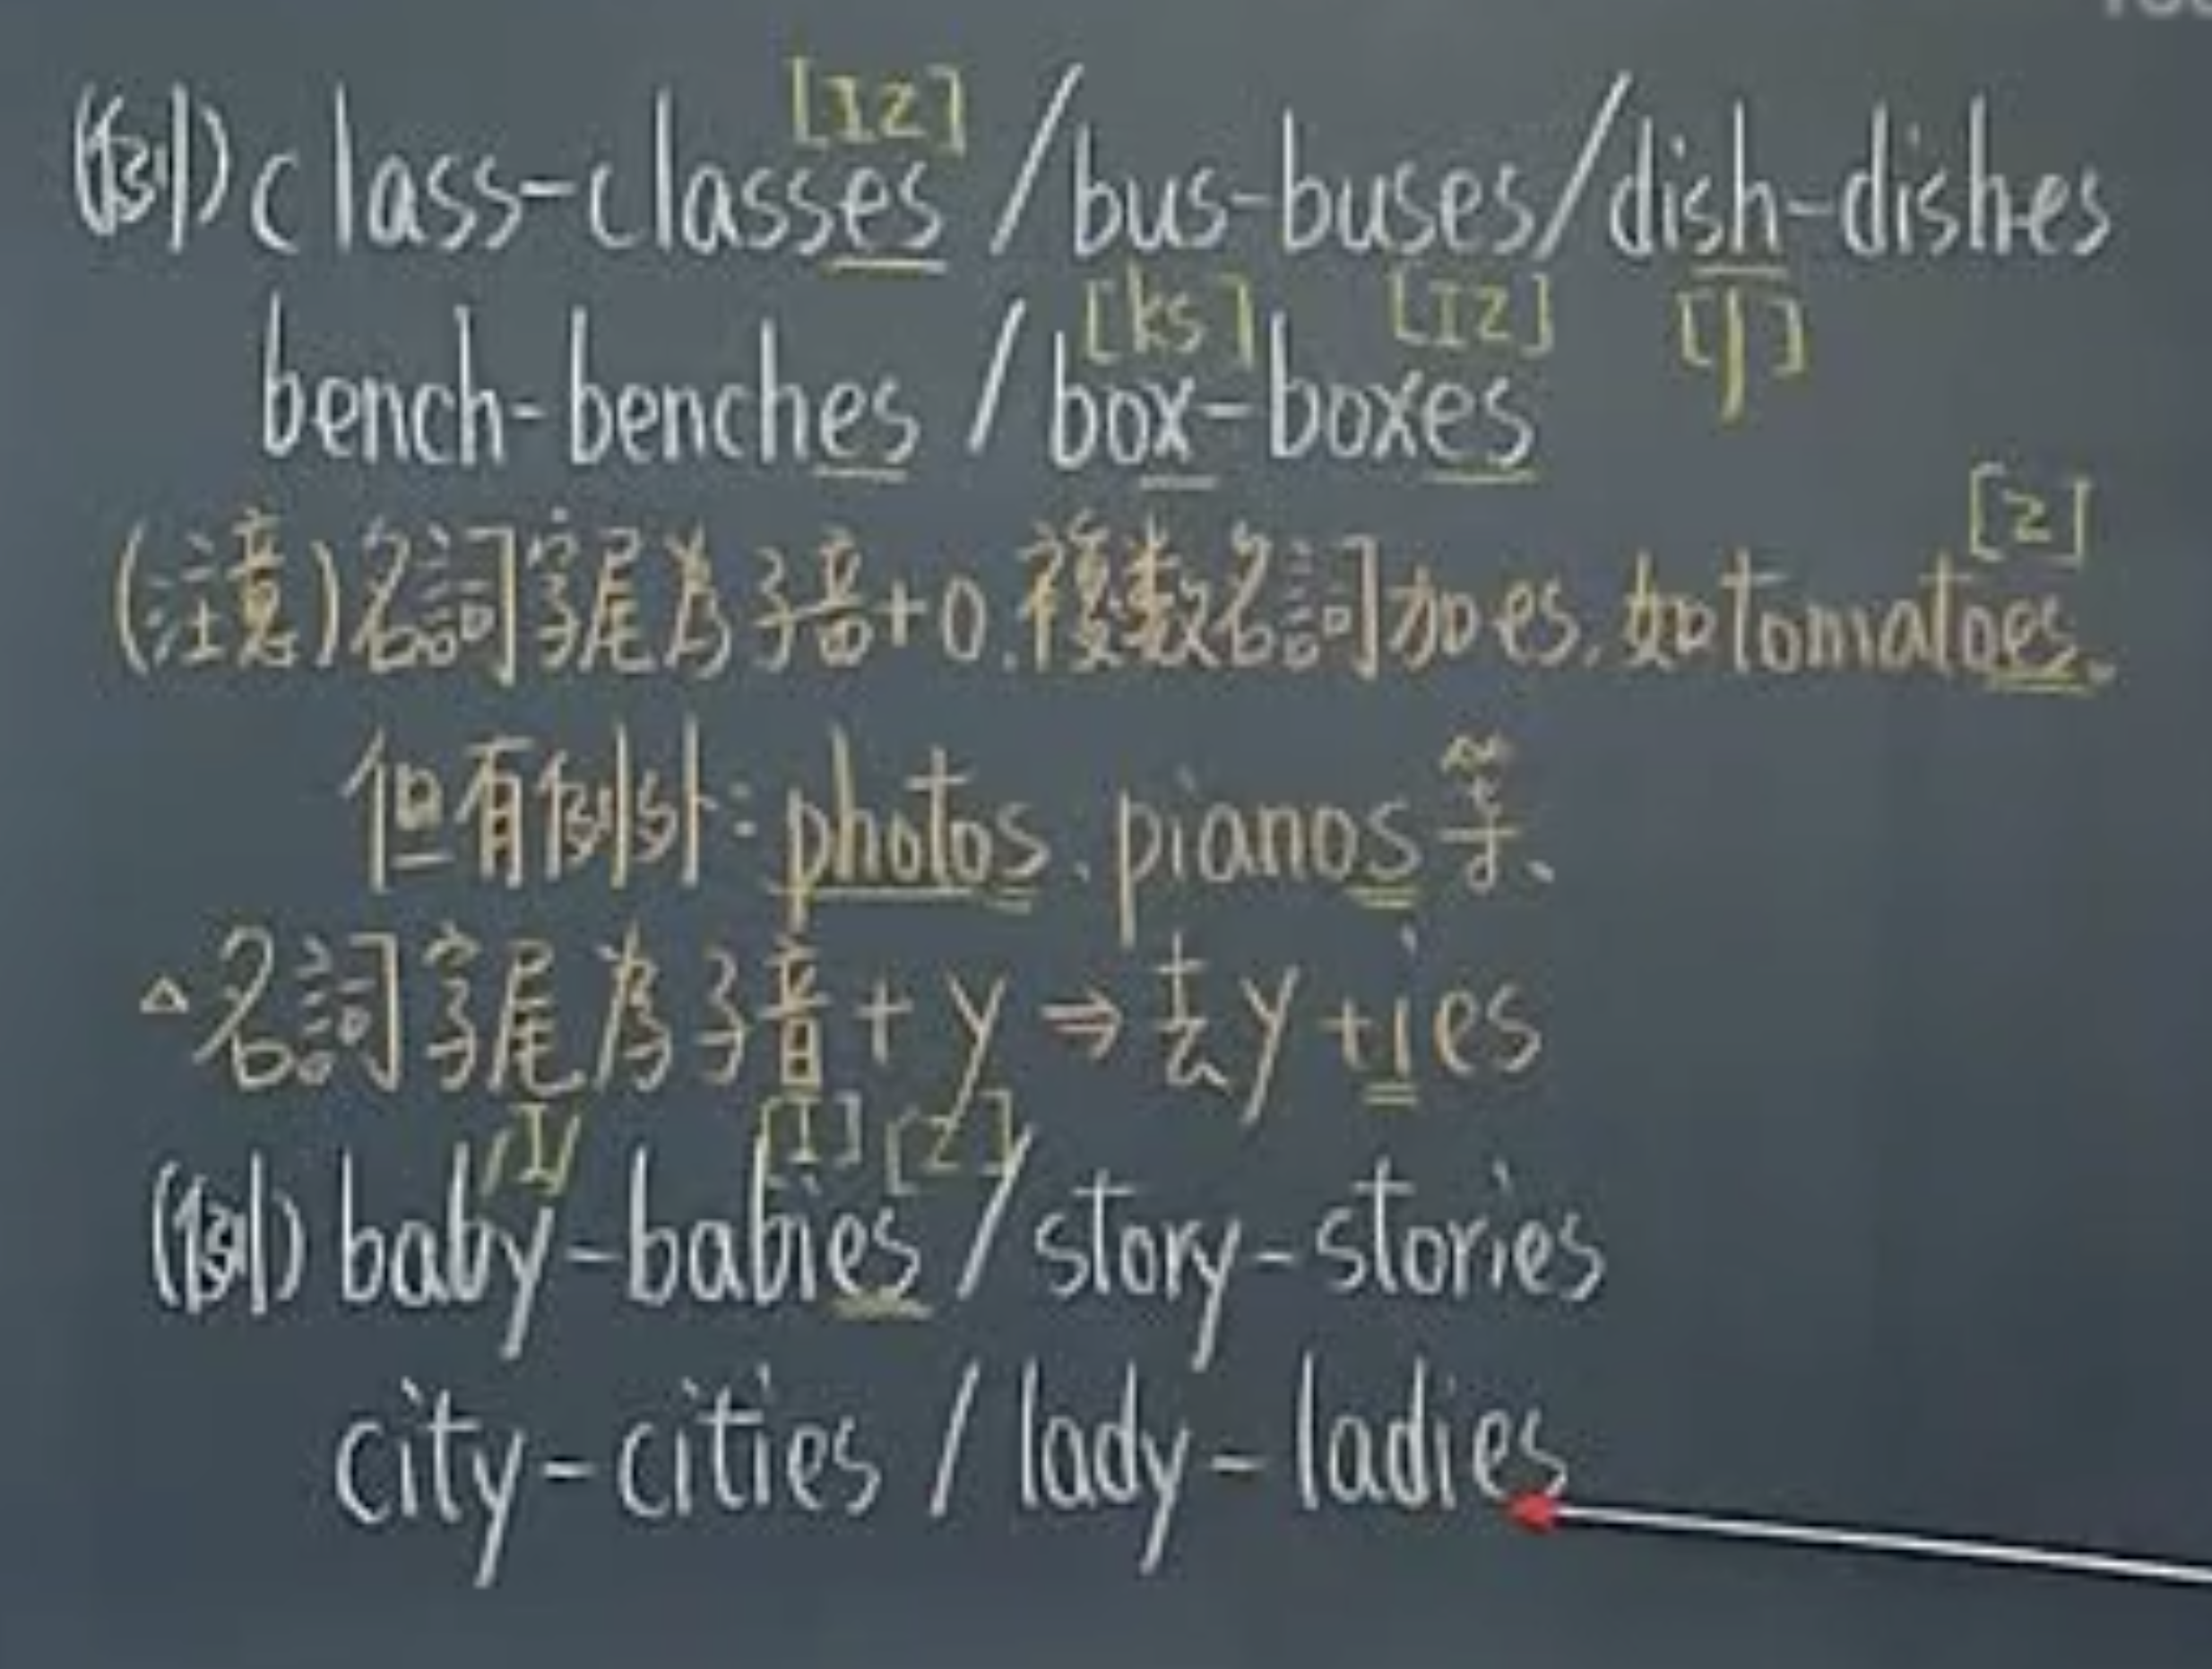 [Iz]
(例) class-classes / bus-buses / dish-dishes
[ks] [Iz] [ʃ]
bench-benches / box-boxes
[z]
(注意) 名詞字尾為子音+o, 複數名詞加es, 如tomatoes.
但有例外: photos, pianos等.
△名詞字尾為子音+y ⇒ 去y+ies
/I/ [I] [z]
(例) baby-babies / story-stories
city-cities / lady-ladies